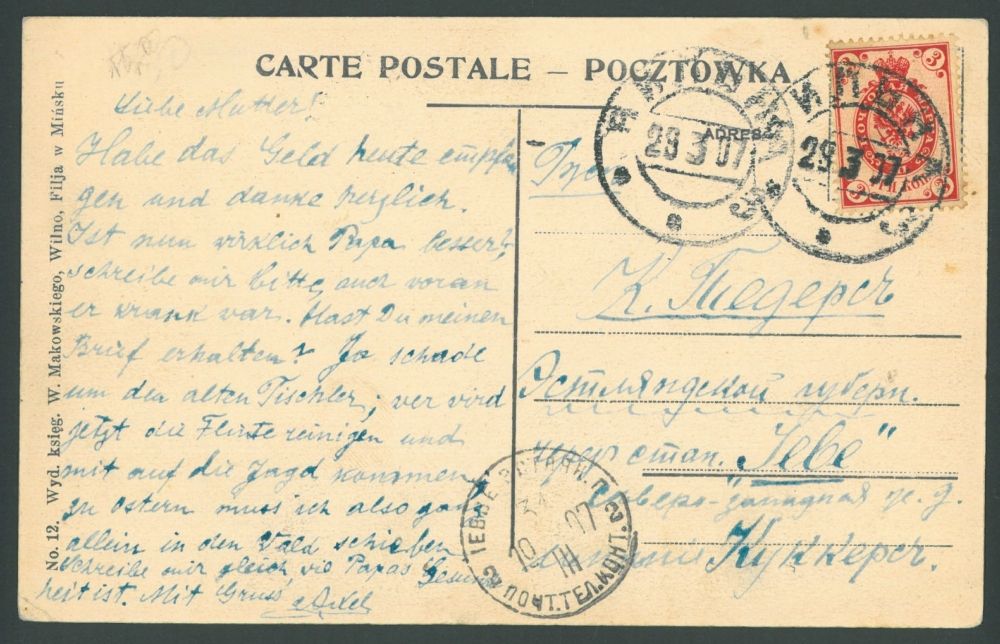 CARTE POSTALE – POCZTÓWKA
No. 12. Wyd. księg. W. Makowskiego, Wilno, Filja w Mińsku
Liebe Mutter!
Habe das Geld heute empfan
gen und danke herzlich.
Ist nun wirklich Papa besser?
schreibe mir bitte, auch woran
er krank war. Hast Du meinen
Brief erhalten? Ja schade
um den alten Tischler; wer wird
jetzt die Flinte reinigen und
mit auf die Jagd kommen
zu ostern muss ich also ganz
allein in den Wald schieben
Schreibe mir gleich, wie Papas Gesund
heit ist. Mit Gruss Axel
ADRES
29 3 07
29 3 07
3
3
К. Педерсъ
Эстляндской губерн.
чрез стан. „Іеве"
Северо-западная ж. д.
имение Куккерсъ.
19 III 07
ПОЧТ. ТЕЛ.